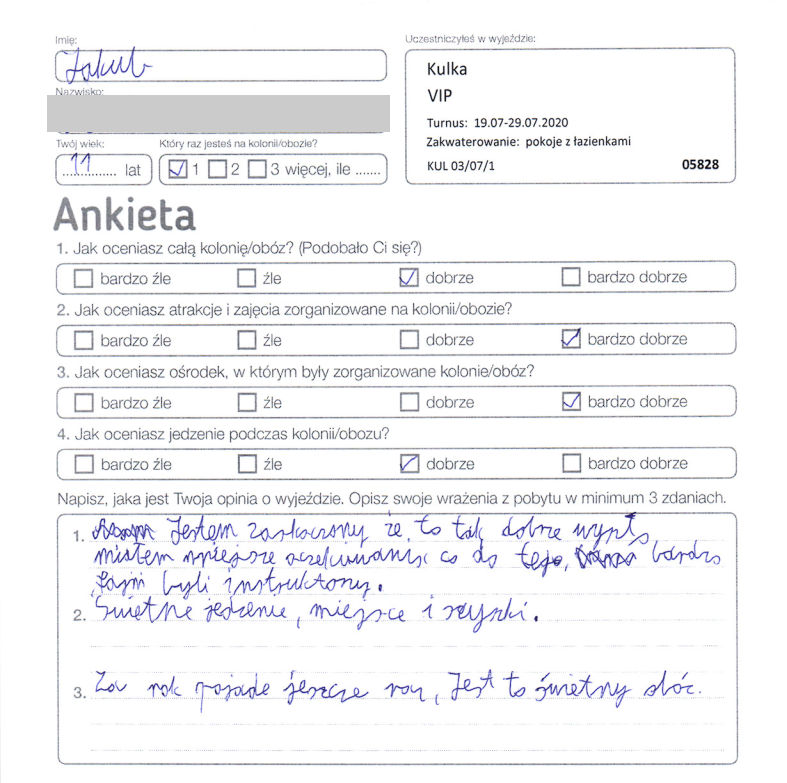 Imię:
Jakub
Nazwisko:
Twój wiek:
11 lat
Który raz jesteś na kolonii/obozie?
1 2 3 więcej, ile .......
Uczestniczyłeś w wyjeździe:
Kulka
VIP
Turnus: 19.07-29.07.2020
Zakwaterowanie: pokoje z łazienkami
KUL 03/07/1 05828
Ankieta
1. Jak oceniasz całą kolonię/obóz? (Podobało Ci się?)
bardzo źle źle dobrze bardzo dobrze
2. Jak oceniasz atrakcje i zajęcia zorganizowane na kolonii/obozie?
bardzo źle źle dobrze bardzo dobrze
3. Jak oceniasz ośrodek, w którym były zorganizowane kolonie/obóz?
bardzo źle źle dobrze bardzo dobrze
4. Jak oceniasz jedzenie podczas kolonii/obozu?
bardzo źle źle dobrze bardzo dobrze
Napisz, jaka jest Twoja opinia o wyjeździe. Opisz swoje wrażenia z pobytu w minimum 3 zdaniach.
1. Jestem zaskoczony że to tak dobrze
miałem co do tego, bardzo
fajni byli instruktorzy.
2. Świetne jedzenie, miejsce i
3. Za rok pojade jeszcze raz, Jest to świetny obóz.